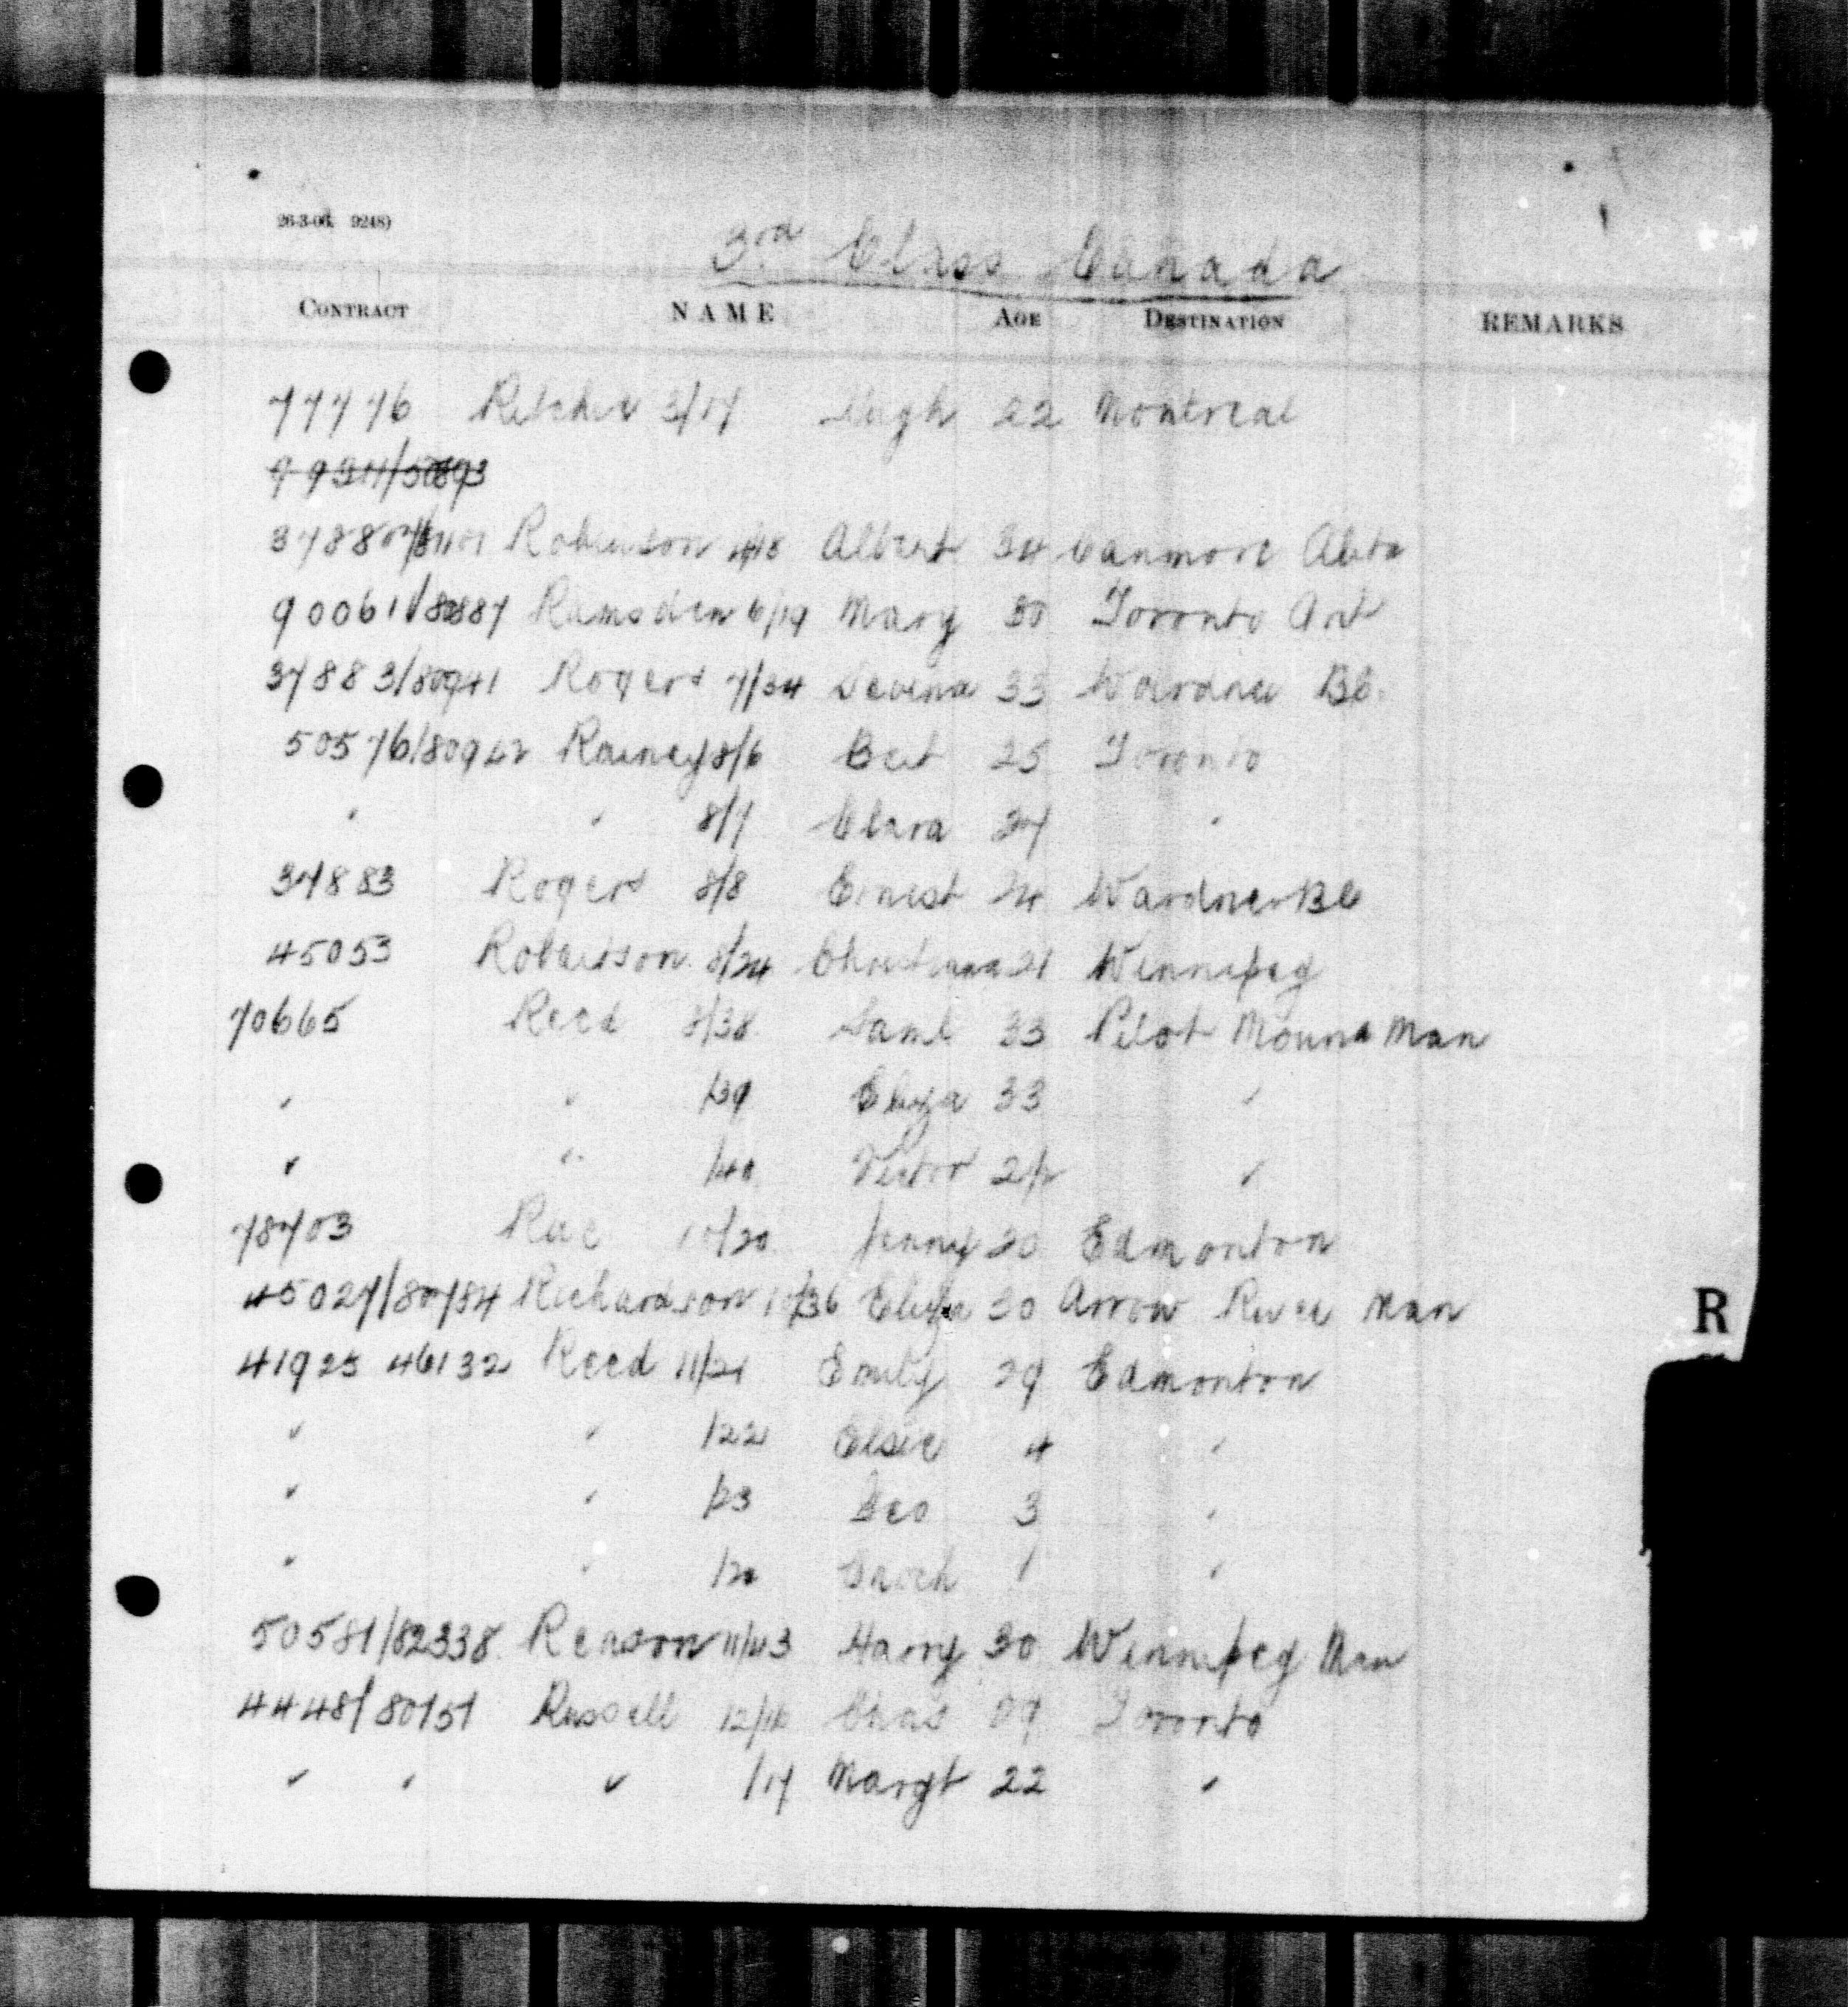 26-3-06. 9248)
3rd Class Canada
CONTRACT NAME AGE DESTINATION REMARKS
77776 Ritchie 3/17 Hugh 22 Montreal
37880 Robinson Albert 34 Canmore Alta
90061/82887 Ramsden 6/19 Mary 30 Toronto Ont
37883/80941 Rogers 7/34 Devina 33 Wardner BC.
50576/80942 Rainey 8/6 Bert 25 Toronto
" " 8/7 Clara 27 "
37883 Rogers 8/8 Ernest Wardner BC
45053 Robertson 8/24 Christiana 21 Winnipeg
70665 Reed 8/38 Saml 33 Pilot Mound Man
" " /39 Eliza 33 "
" " /40 Victor "
78703 Rae 10/20 Jenny 20 Edmonton
45027/80784 Richardson 10/36 Eliza 20 Arrow River Man
R
41925 46132 Reed 11/21 Emily 29 Edmonton
" " /22 Elsie 4 "
" " /23 Geo 3 "
" " Enoch 1 "
50581/82338 Reason 11/43 Harry 30 Winnipeg Man
4448/80151 Russell 12/16 Chas 29 Toronto
" " " /17 Margt 22 "